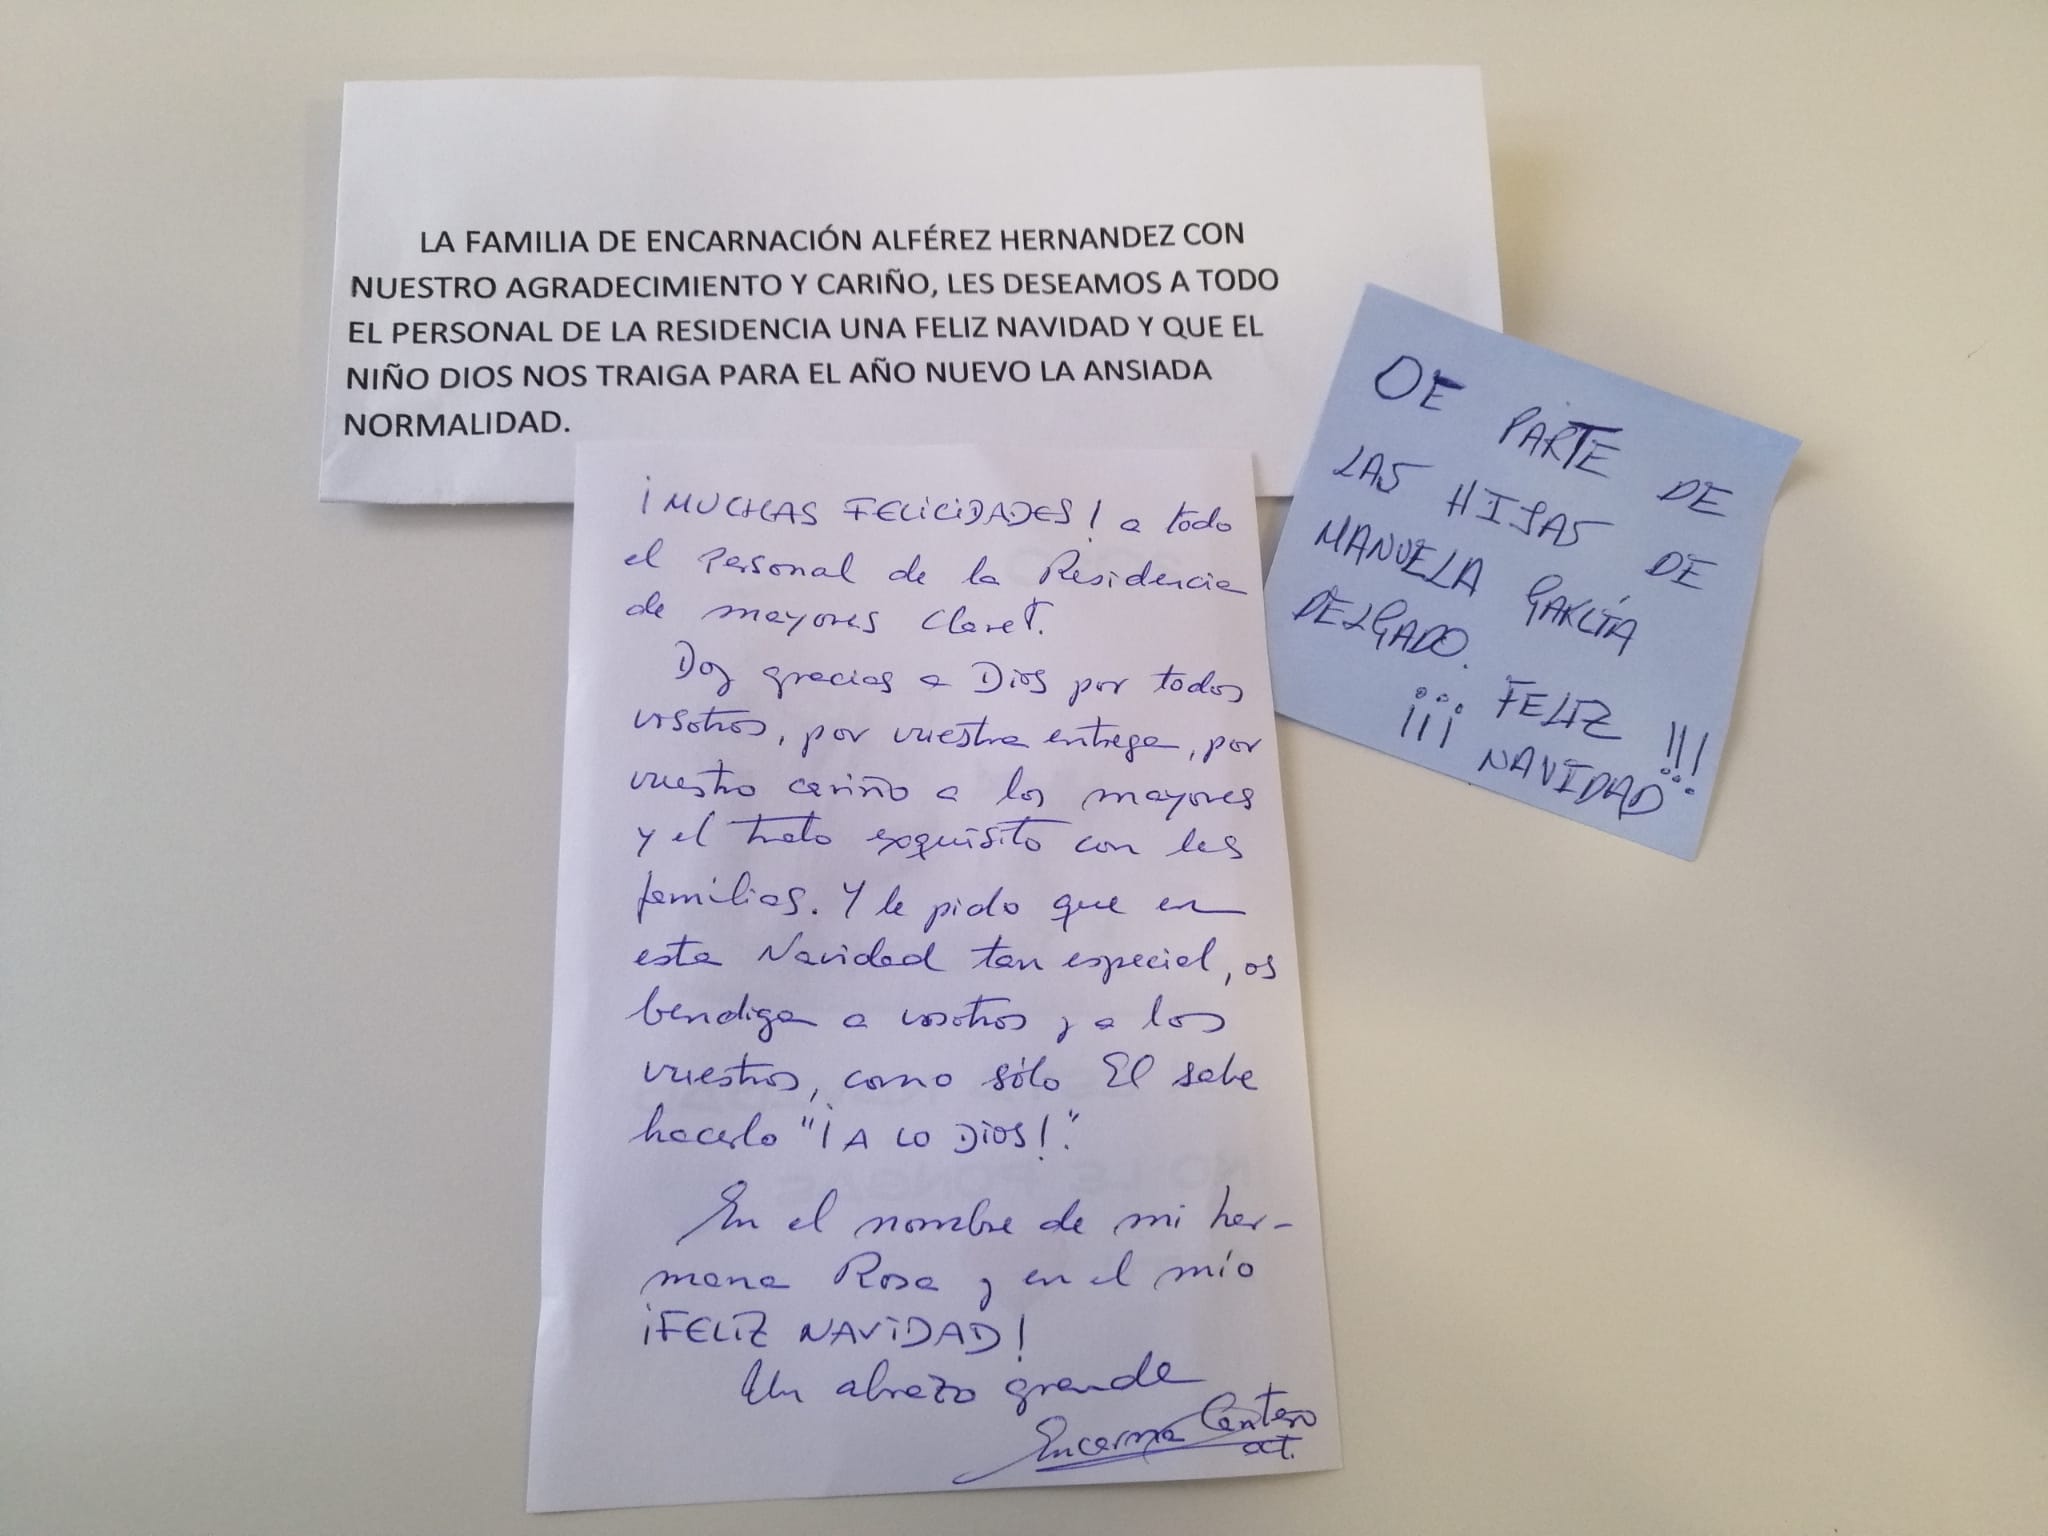 LA FAMILIA DE ENCARNACIÓN ALFÉREZ HERNANDEZ CON
NUESTRO AGRADECIMIENTO Y CARIÑO, LES DESEAMOS A TODO
EL PERSONAL DE LA RESIDENCIA UNA FELIZ NAVIDAD Y QUE EL
NIÑO DIOS NOS TRAIGA PARA EL AÑO NUEVO LA ANSIADA
NORMALIDAD.
DE PARTE DE
LAS HIJAS DE
MANUELA GARCÍA
DELGADO.
¡¡¡ FELIZ
NAVIDAD !!!
¡MUCHAS FELICIDADES! a todo
el Personal de la Residencia
de mayores Claret.
Doy gracias a Dios por todos
vosotros, por vuestra entrega, por
vuestro cariño a los mayores
y el trato exquisito con las
familias. Y le pido que en
esta Navidad tan especial, os
bendiga a vosotros y a los
vuestros, como sólo El sabe
hacerlo "¡A LO DIOS!".
En el nombre de mi her-
mana Rosa y en el mío
¡FELIZ NAVIDAD!
Un abrazo grande
Encarna Cantero